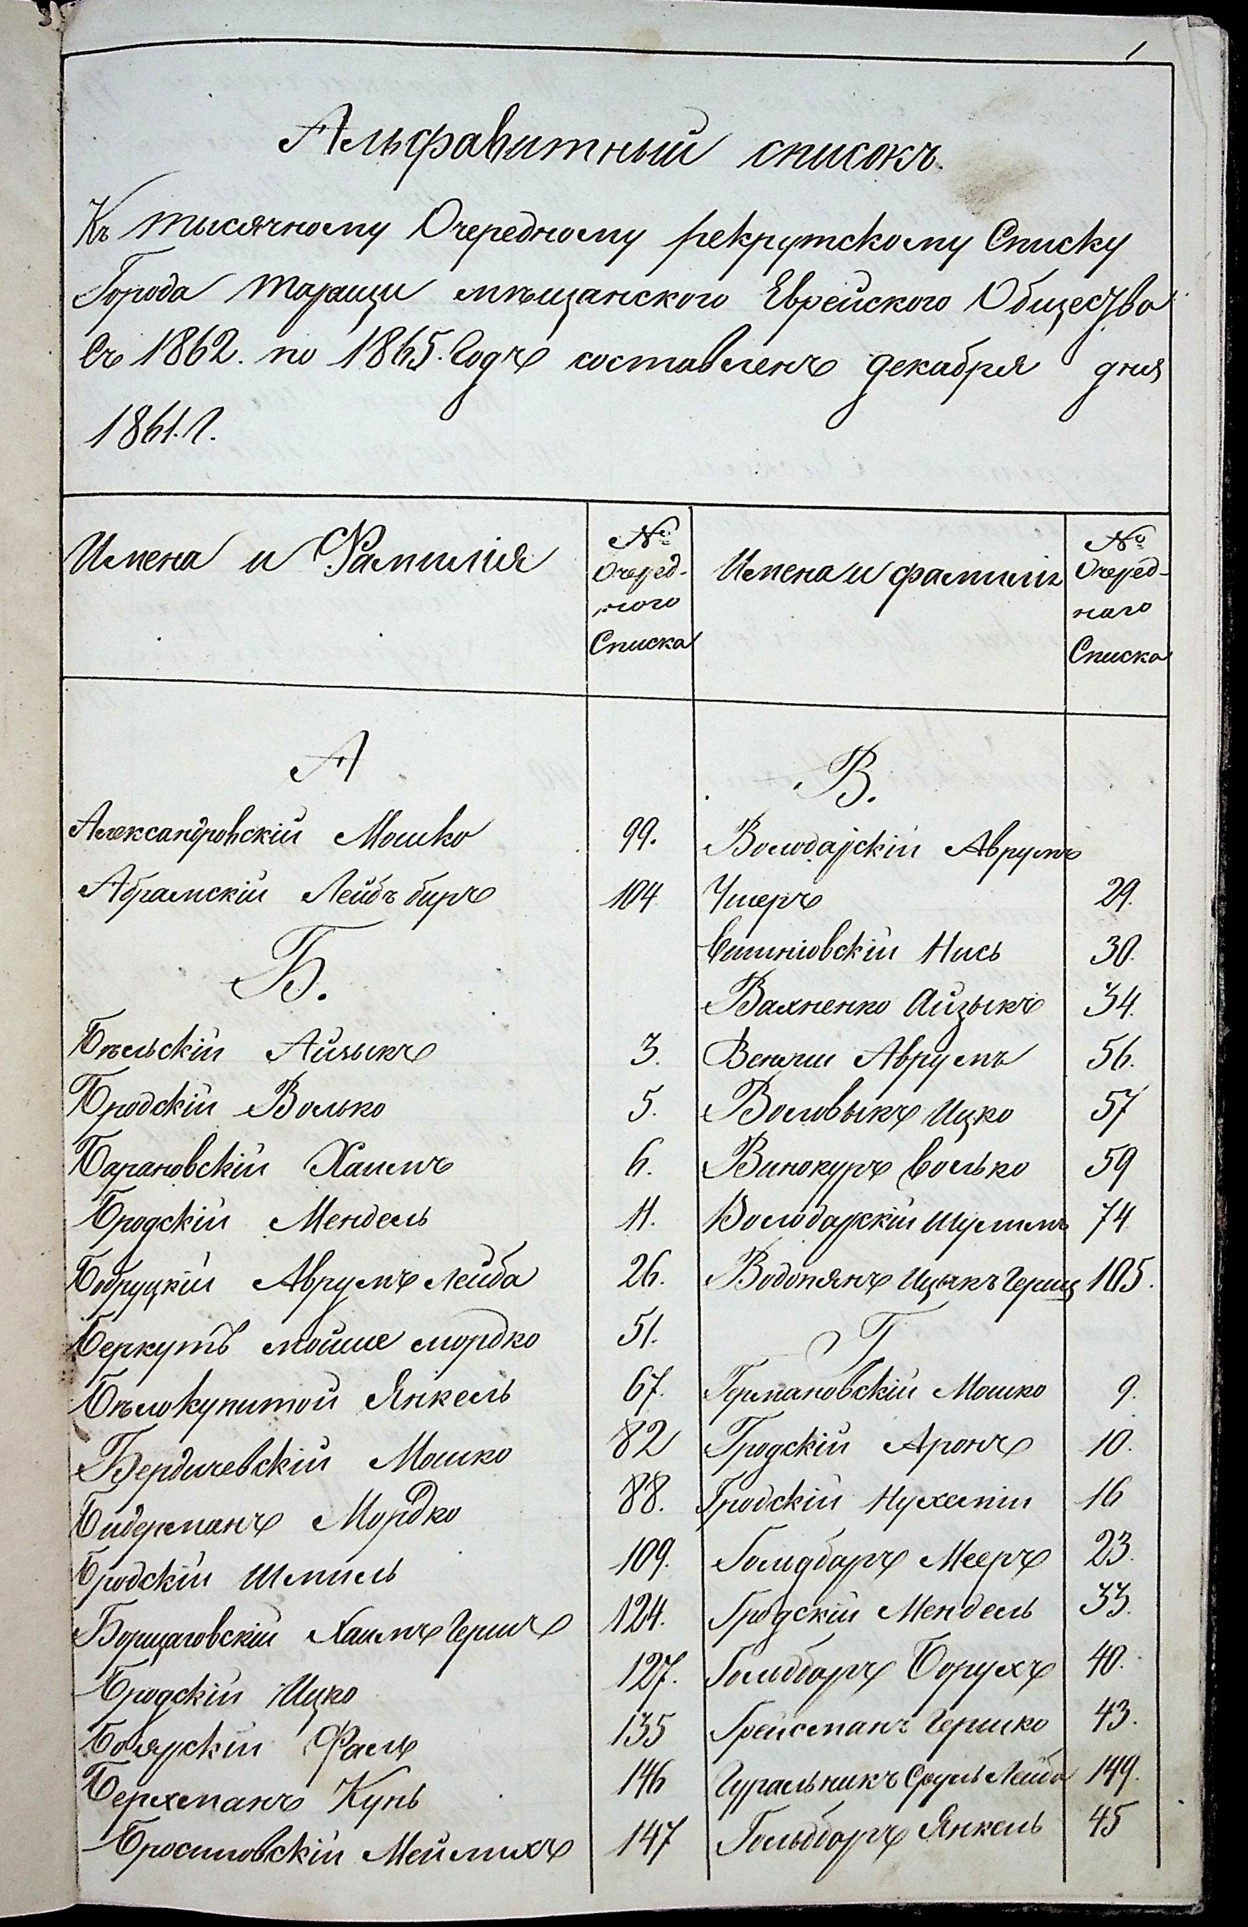 1
Альфавитный списокъ.
Къ тысячному Очередному рекрутскому Списку
Города Таращи мѣщанского Еврейского Общества
Съ 1862. по 1865. Годъ составленъ декабря дня
1861. г.
Имена и Фамилія
№
Очеред-
ного
Списка
Имена и фамиліи
№
Очеред-
наго
Списка
А
Александровскій Мошко 99.
Абрамскій Лейбъ беръ 104
Б.
Бѣльскій Айзыкъ 3.
Бродскій Волько 5.
Барановскій Хаимъ 6.
Бродскій Мендель 11.
Бобруцкій Аврумъ Лейба 26.
Беркутъ мойше мордко 51.
Бѣлокупитой Янкель 67.
Бердичевскій Мошко 82
Бидерманъ Мордко 88.
Бродскій Шмиль 109.
Борщаговскій Хаимъ Гершъ 124.
Бродскій Ицко 127.
Боярскій 135
Берхманъ Кунь 146
Бросиловскій Мейлихъ 147
В.
Володарскій Аврумъ
Ушеръ 29.
Вишніовскій Нись 30.
Вахненко Айзыкъ 34.
Аврумъ 56.
Воловыкъ Ицко 57
Винокуръ Волько 59
Володарскій Шулимъ 74
Водопянъ Ицыкъ Герш 105.
Г
Германовскій Мошко 9.
Гродскій Аронъ 10.
Гродскій Нухемпіи 16
Голидборъ Мееръ 23.
Гродскій Мендель 33.
Голдборъ Борухъ 40.
Грейсманъ Гершко 43.
Гуральникъ Сруль Лейба 149.
Гольдборъ Янкель 45